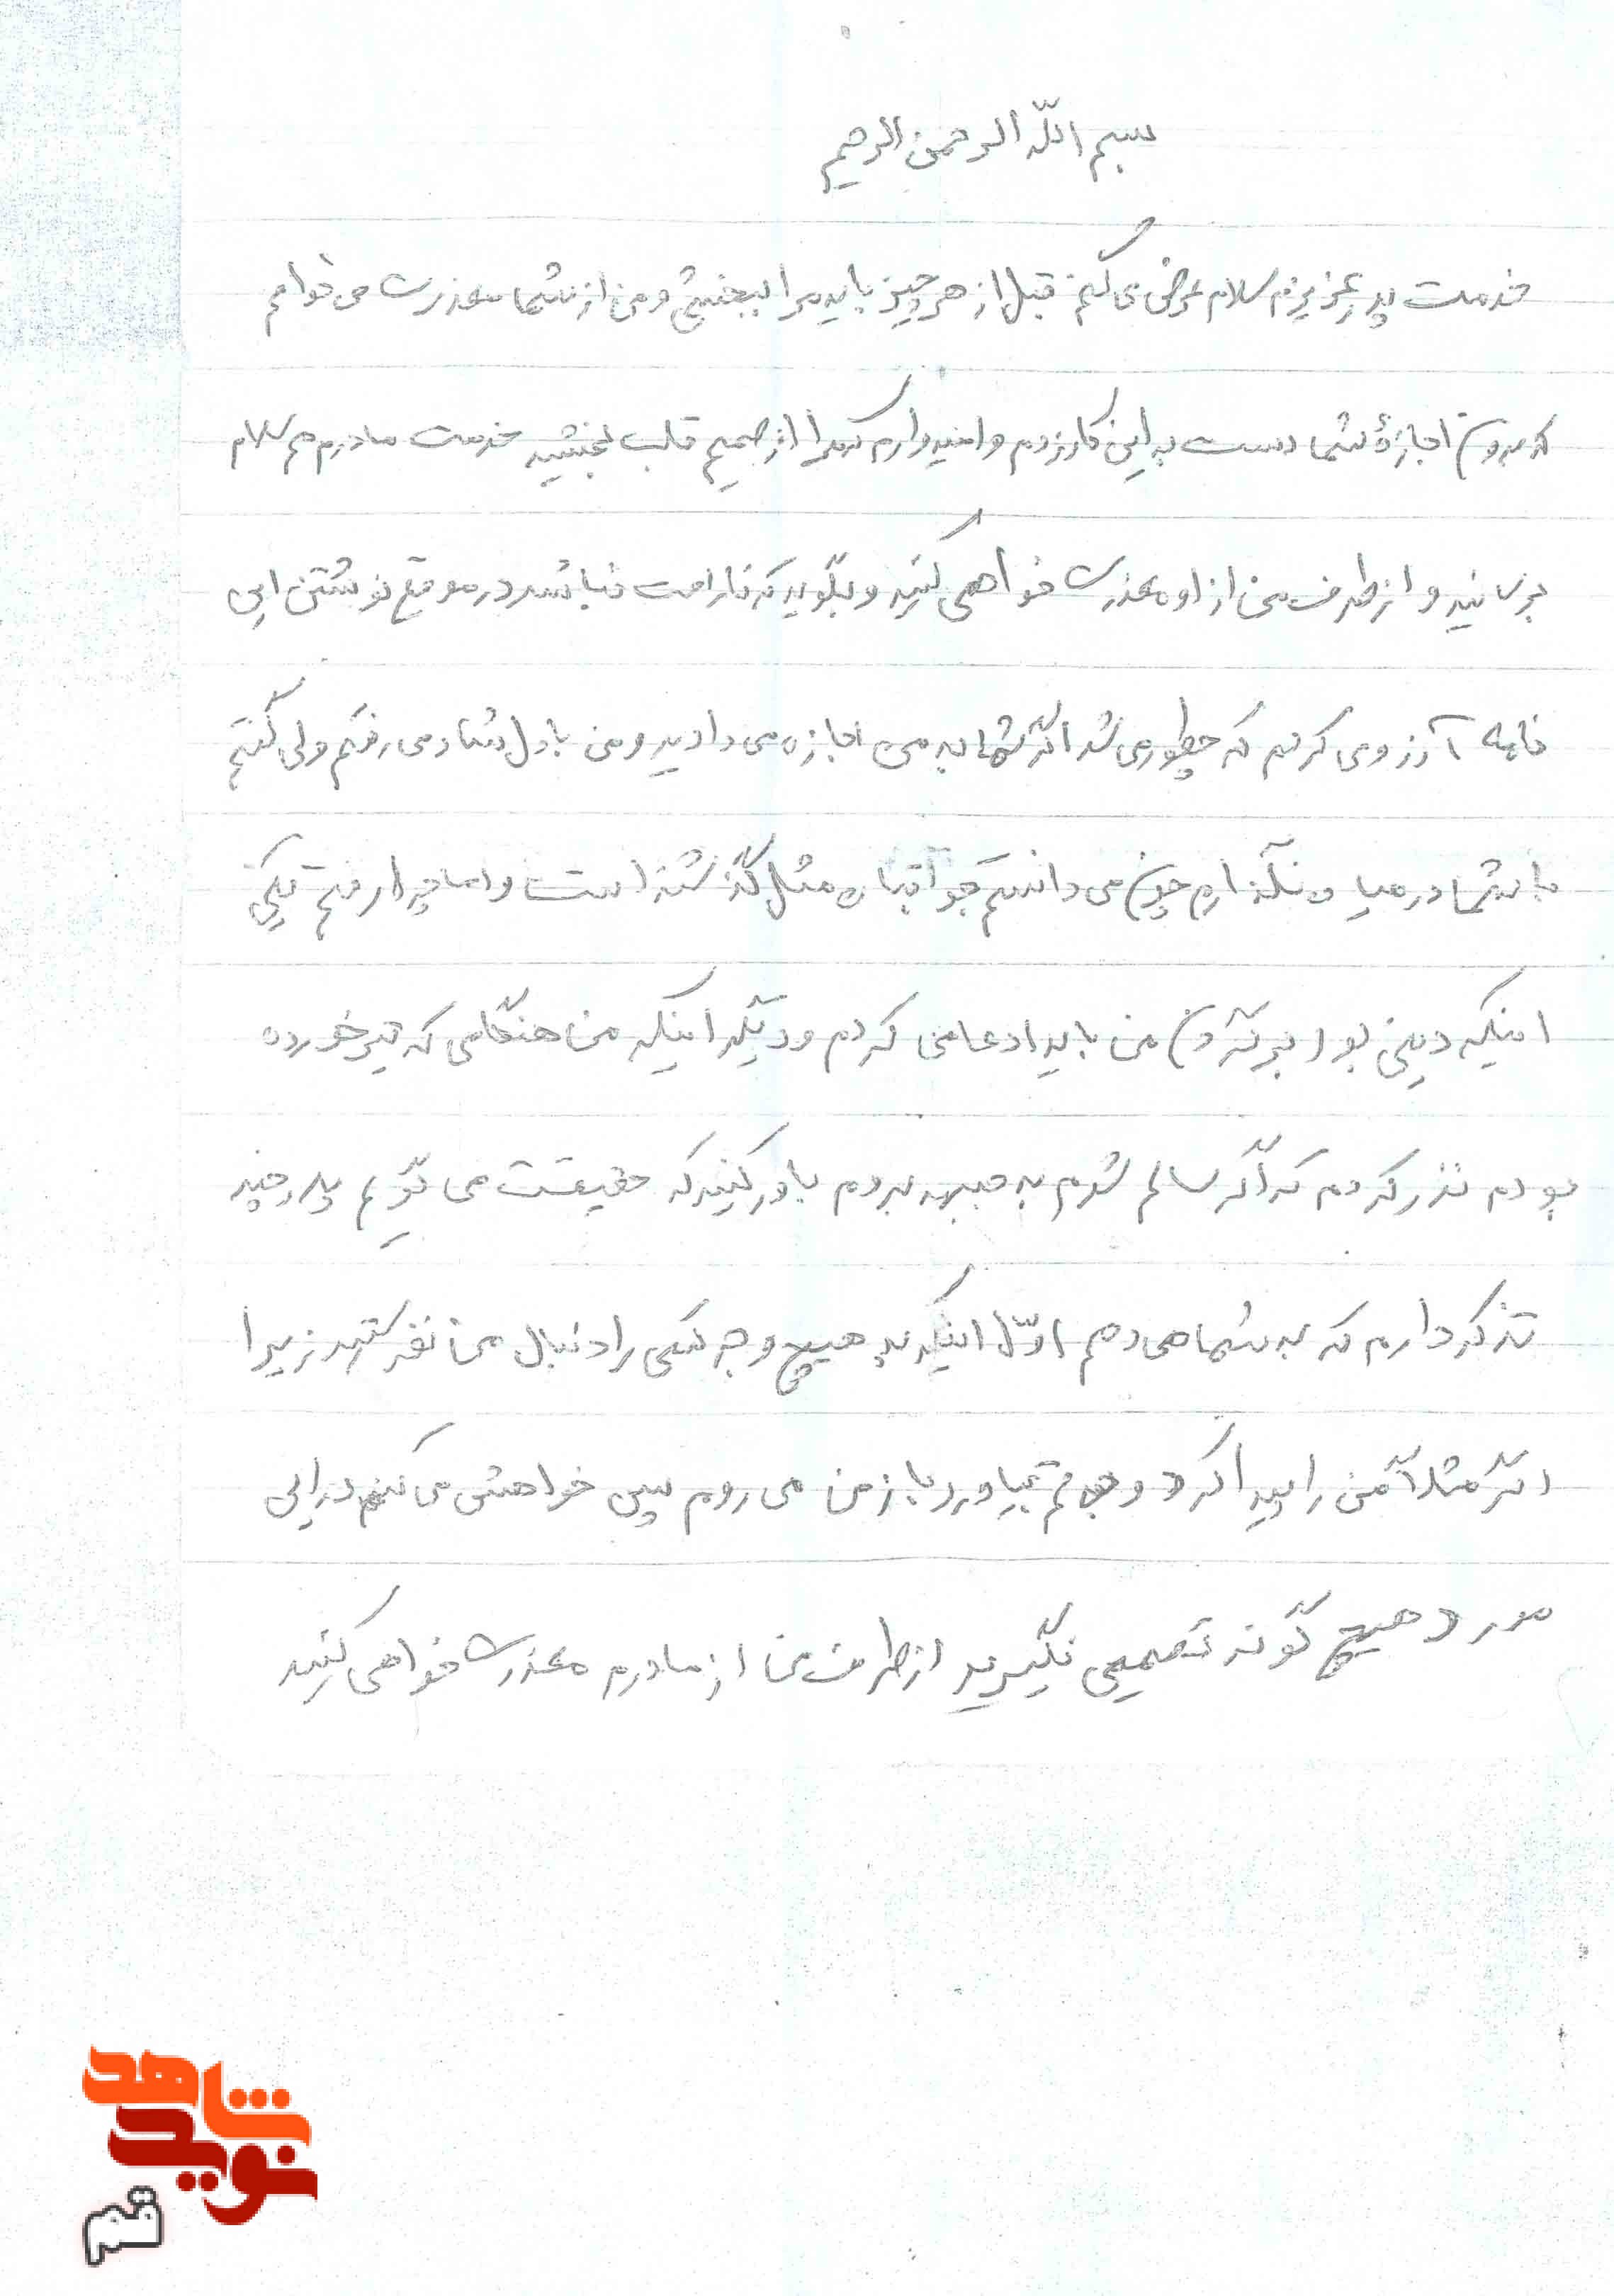 بسم الله الرحمن الرحیم
خدمت پدر عزیزم سلام عرض می کنم قبل از هر چیز باید مرا ببخشی و من از شما معذرت می خواهم
که بدون اجازهٔ شما دست به این کار زدم و امیدوارم که مرا از صمیم قلب ببخشید خدمت مادرم هم سلام
برسانید و از طرف من از او معذرت خواهی کنید و بگوید که ناراحت نباشد در موقع نوشتن این
نامه آرزو می کردم که چطور می شد اگر شما به من اجازه می دادید و من با دل شاد می رفتم ولی گفتم
با شما در میان نگذارم چون می دانستم جوابتان مثل گذشته است و اما چرا رفتم یکی
اینکه دینی بود بر گردن من باید ادا می کردم و دیگر اینکه من هنگامی که تیر خورده
بودم نذر کردم که اگر سالم شدم به جبهه بروم باور کنید که حقیقت می گویم پدر چند
تذکر دارم که به شما می دهم اوّل اینکه به هیچ وجه کسی را دنبال من نفرستید زیرا
اگر مثلاً من را پیدا کرد و به قم بیاورد باز من می روم پس خواهش می کنم در این
مورد هیچ گونه تصمیمی نگیرید از طرف من از مادرم معذرت خواهی کنید
شاهد
نوید
قم